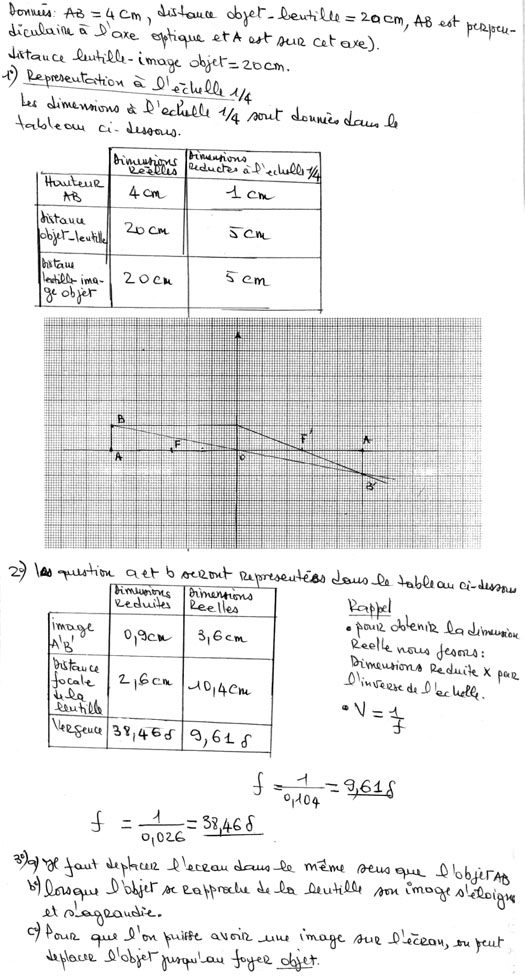 Données: AB = 4cm, distance objet-lentille = 20cm, AB est perpen-
diculaire à l'axe optique et A est sur cet axe).
distance lentille-image objet = 20cm.
1°) Représentation à l'échelle 1/4
Les dimensions à l'échelle 1/4 sont données dans le
tableau ci-dessous.
Dimensions Réelles
Dimensions réduites à l'échelle 1/4
Hauteur AB
4cm
1cm
distance objet-lentille
20cm
5cm
distance lentille-image objet
20cm
5cm
B
A
F
O
F'
A
B'
2°) les question a et b seront représentées dans le tableau ci-dessous
Dimensions Réduites
Dimensions Réelles
image A'B'
0,9cm
3,6cm
Distance focale de la lentille
2,6cm
10,4cm
Vergence
38,46δ
9,61δ
Rappel
• pour obtenir la dimension
Réelle nous fesons:
Dimensions Réduite x par
l'inverse de l'échelle.
• V = 1/f
f = 1/0,104 = 9,61δ
f = 1/0,026 = 38,46δ
3°) a) Il faut déplacer l'écran dans le même sens que l'objet AB
b) lorsque l'objet se rapproche de la lentille son image s'éloigne
et s'agrandie.
c) Pour que l'on puisse avoir une image sur l'écran, on peut
déplacer l'objet jusqu'au foyer objet.